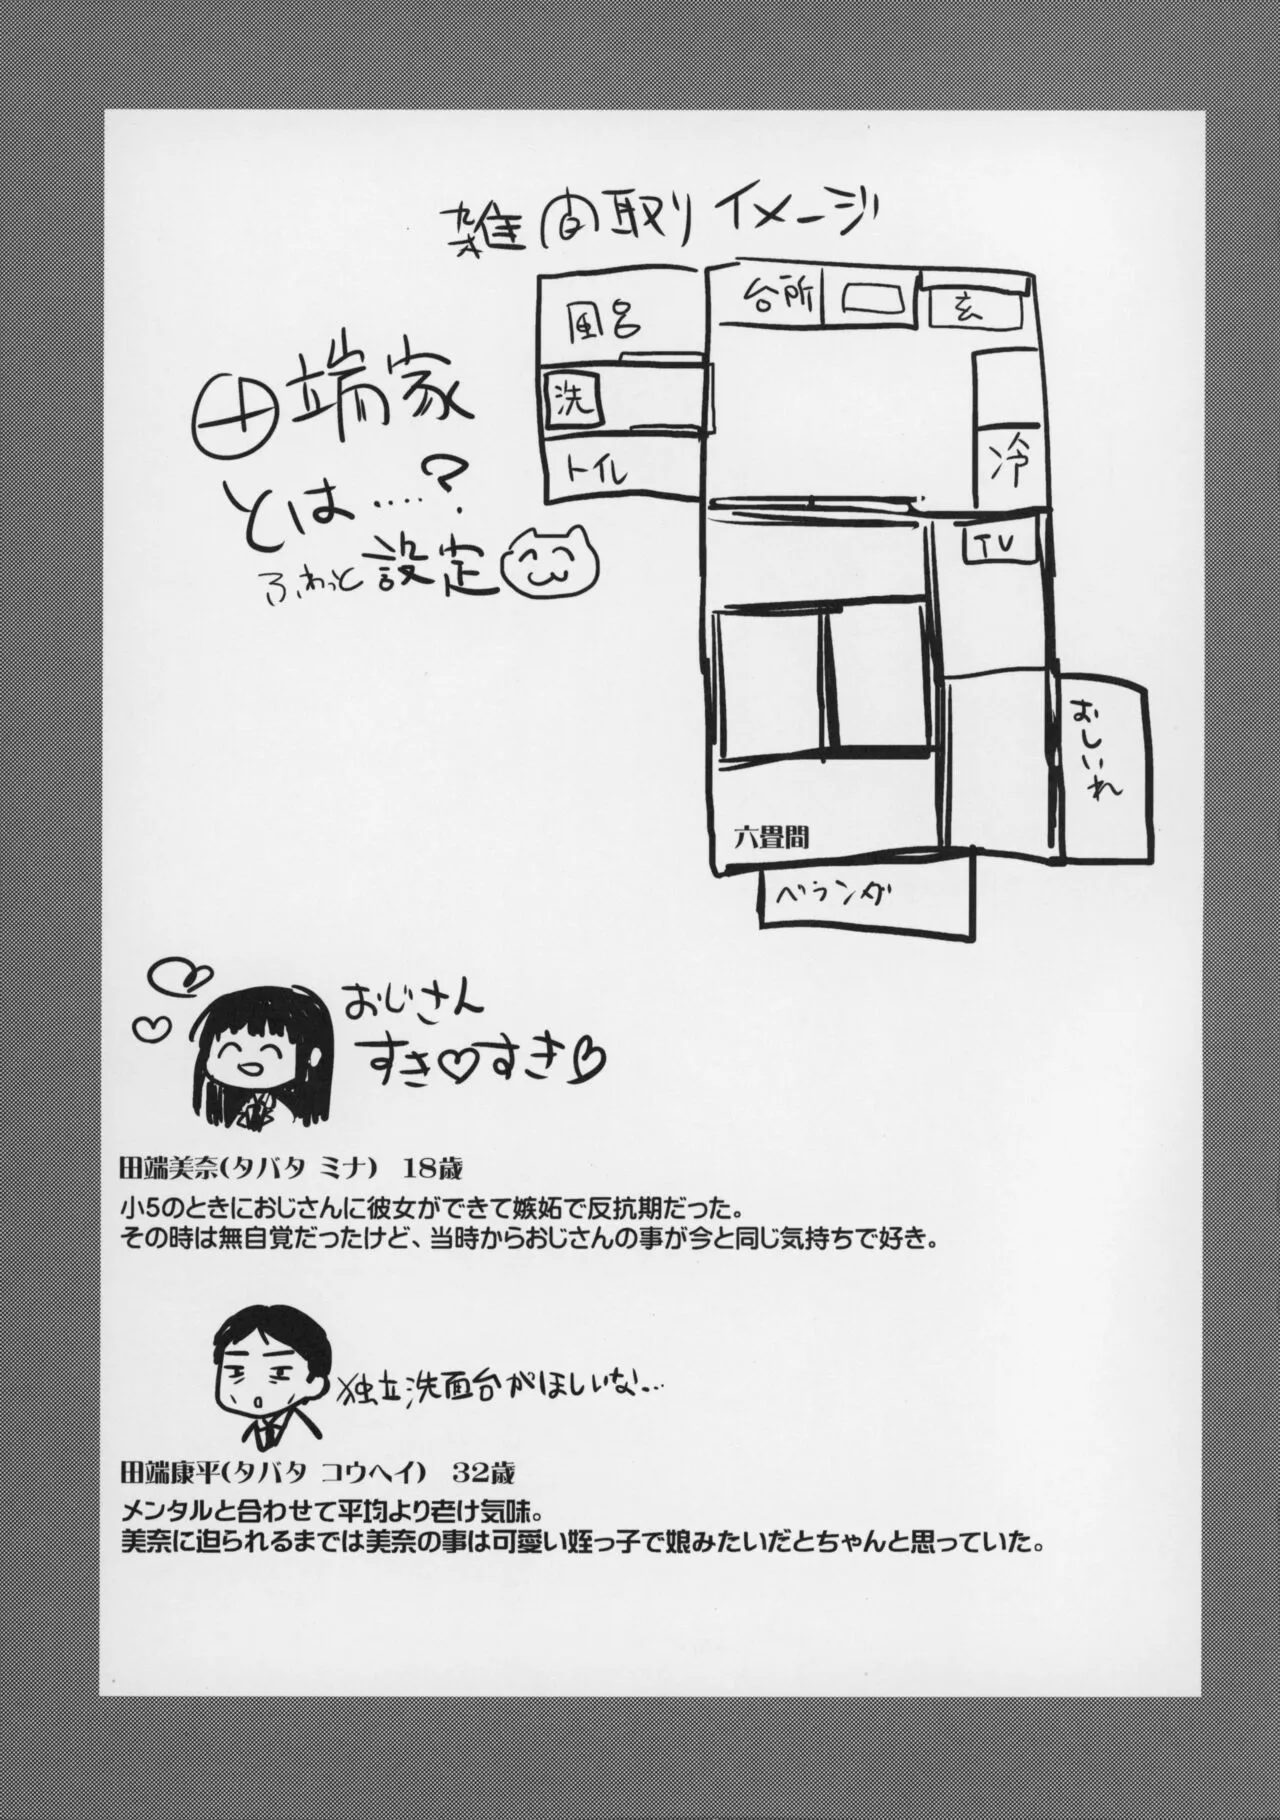 雑間取りイメージ
田端家
とは‥‥?
ふわっと設定
風呂
洗
トイレ
台所
玄
冷
TV
おしいれ
六畳間
ベランダ
おじさん
すき♡すき♡
田端美奈(タバタ ミナ) 18歳
小5のときにおじさんに彼女ができて嫉妬で反抗期だった。
その時は無自覚だったけど、当時からおじさんの事が今と同じ気持ちで好き。
独立洗面台がほしいな…
田端康平(タバタ コウヘイ) 32歳
メンタルと合わせて平均より老け気味。
美奈に迫られるまでは美奈の事は可愛い姪っ子で娘みたいだとちゃんと思っていた。